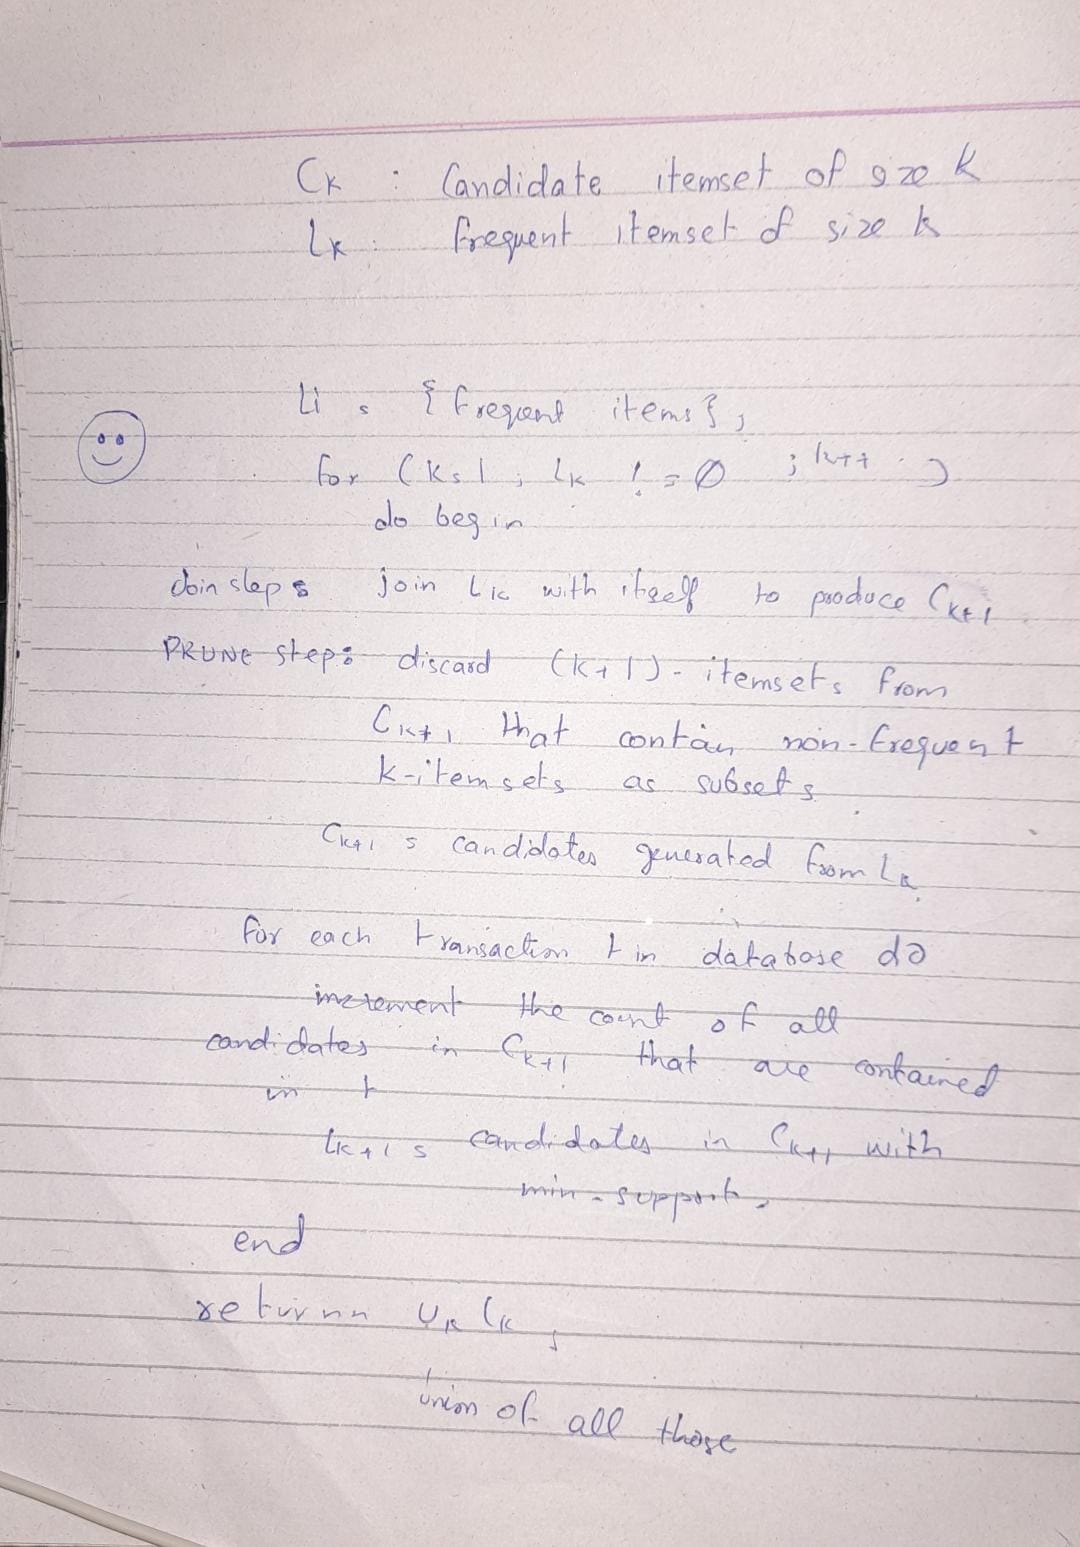 Ck : Candidate itemset of size k
Lk : frequent itemset of size k
Li = { frequent items } ;
for ( k = 1 ; Lk != ∅ ; k++ )
do begin
Join step : join Lk with itself to produce Ck+1
PRUNE step : discard (k+1) - itemsets from
Ck+1 that contain non-frequent
k-itemsets as subsets
Ck+1 = candidates generated from Lk
for each transaction t in database do
increment the count of all
candidates in Ck+1 that are contained
in t
Lk+1 = candidates in Ck+1 with
min-support.
end
returnn Uk Lk ;
Union of all those